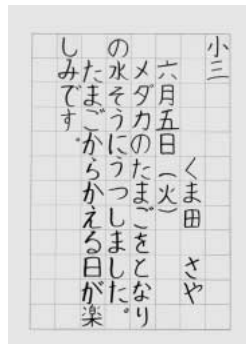 小三
くま田 さや
六月五日(火)
メダカのたまごをとなり
の水そうにうつしました。
たまごからかえる日が楽
しみです。